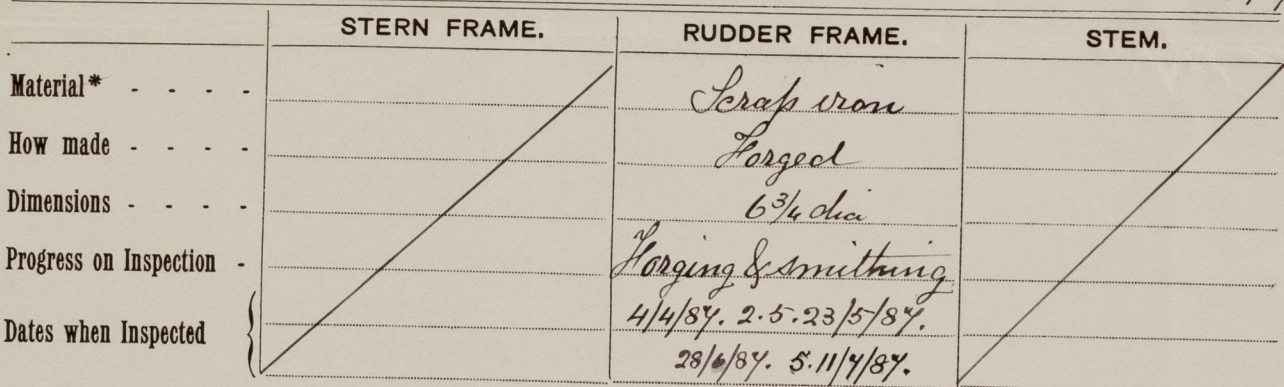 STERN FRAME. RUDDER FRAME. STEM.
Material* - - - - Scrap iron
How made - - - - Forged
Dimensions - - - - 6 3/4 dia
Progress on Inspection - Forging & smithing
Dates when Inspected 4/4/87. 2.5.23/5/87.
28/6/87. 5.11/7/87.